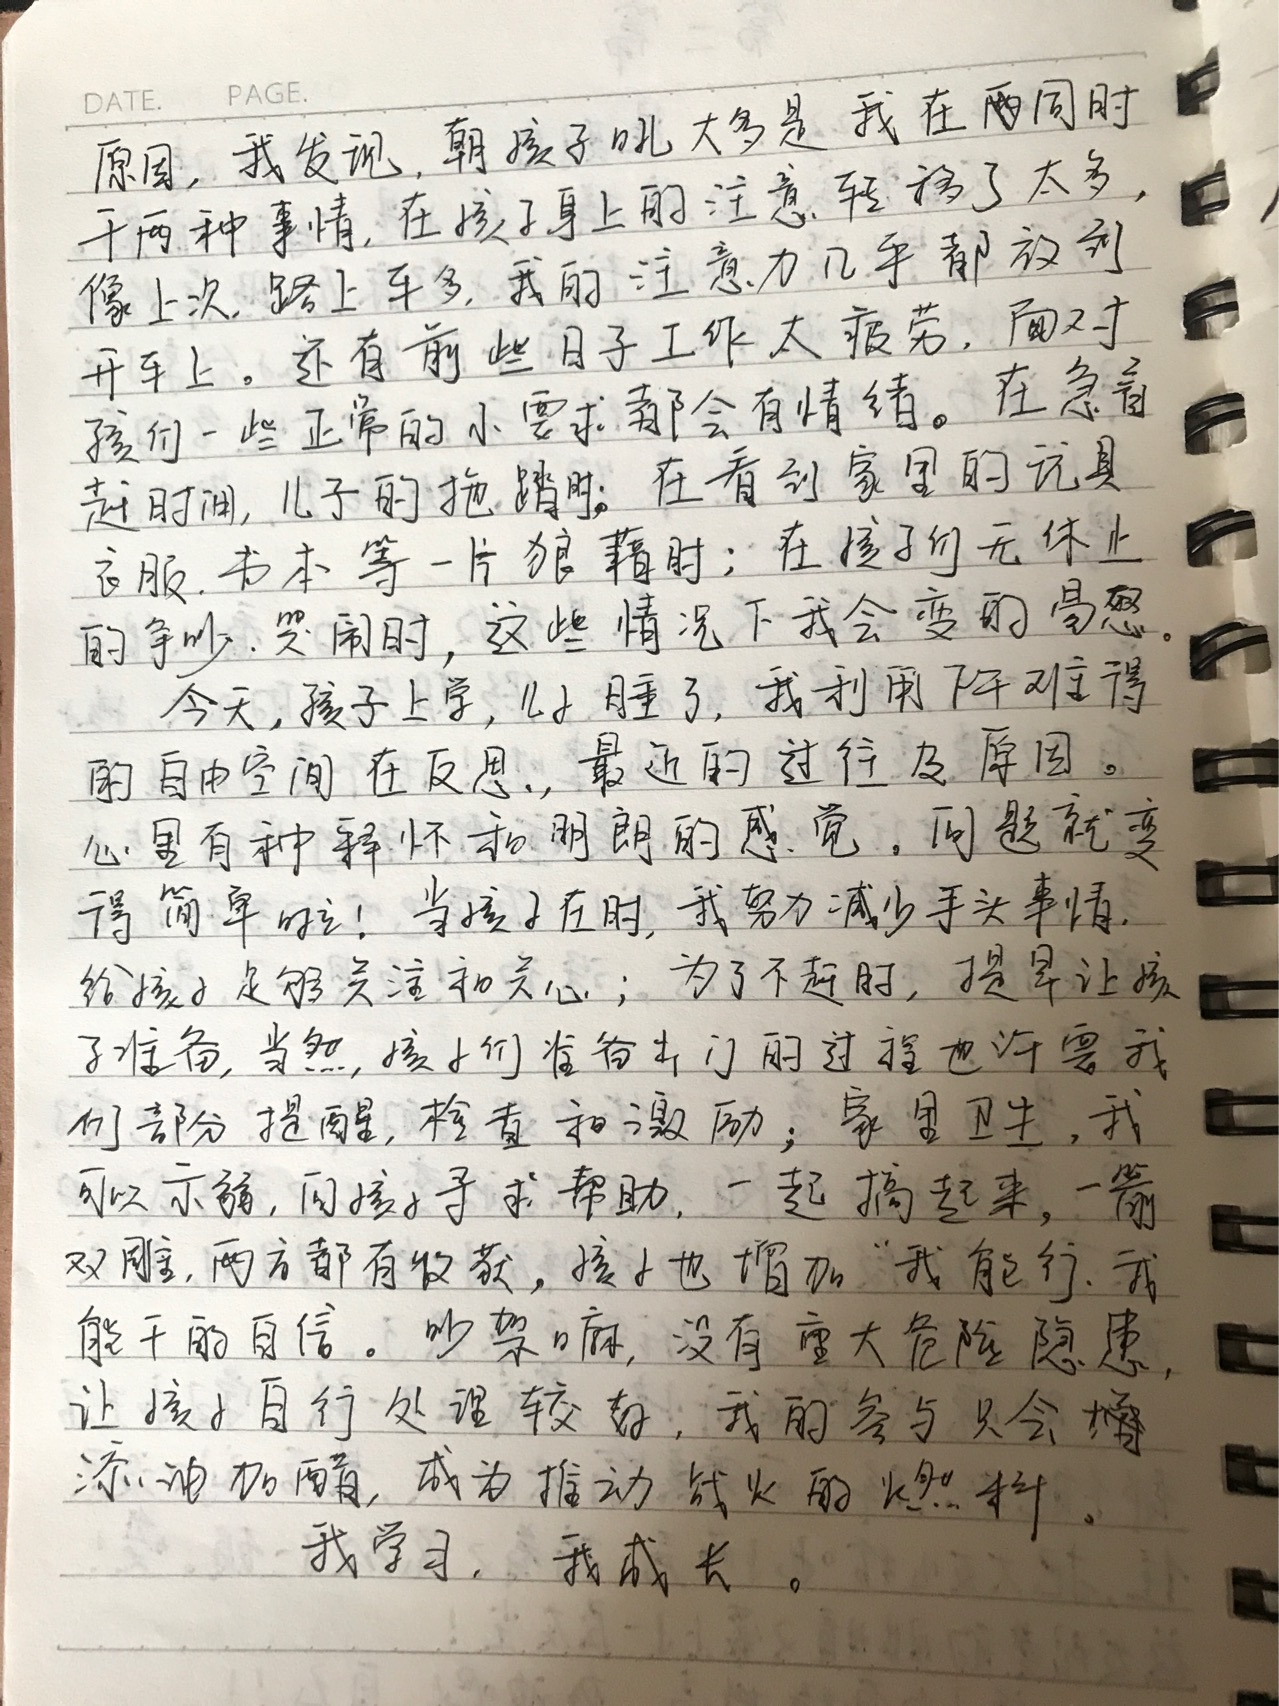 DATE. PAGE.
原因，我发现，朝孩子吼大多是我在两同时
干两种事情，在孩子身上的注意转移了太多，
像上次，路上车多，我的注意力几乎都放到
开车上。还有前些日子工作太疲劳，面对
孩们一些正常的小要求都会有情绪。在急着
赶时间，儿子的拖蹭时。在看到家里的玩具
衣服、书本等一片狼藉时；在孩子们无休止
的争吵、哭闹时，这些情况下我会变的易怒。
今天，孩子上学，儿子睡了，我利用下午难得
的自由空间在反思，最近的过往及原因。
心里有种释怀和明朗的感觉。问题就变
得简单啦！当孩子在时，我努力减少手头事情，
给孩子足够关注和关心；为了不赶时，提早让孩
子准备，当然，孩子们准备出门的过程也许要我
们部分提醒，检查和激励；家里卫生，我
可以示弱，向孩子寻求帮助，一起搞起来，一箭
双雕，两方都有收获，孩子也增加“我能行、我
能干的自信。吵架嘛，没有重大危险隐患，
让孩子自行处理较好，我的参与只会增
添油加醋，成为推动战火的燃料。
我学习，我成长。